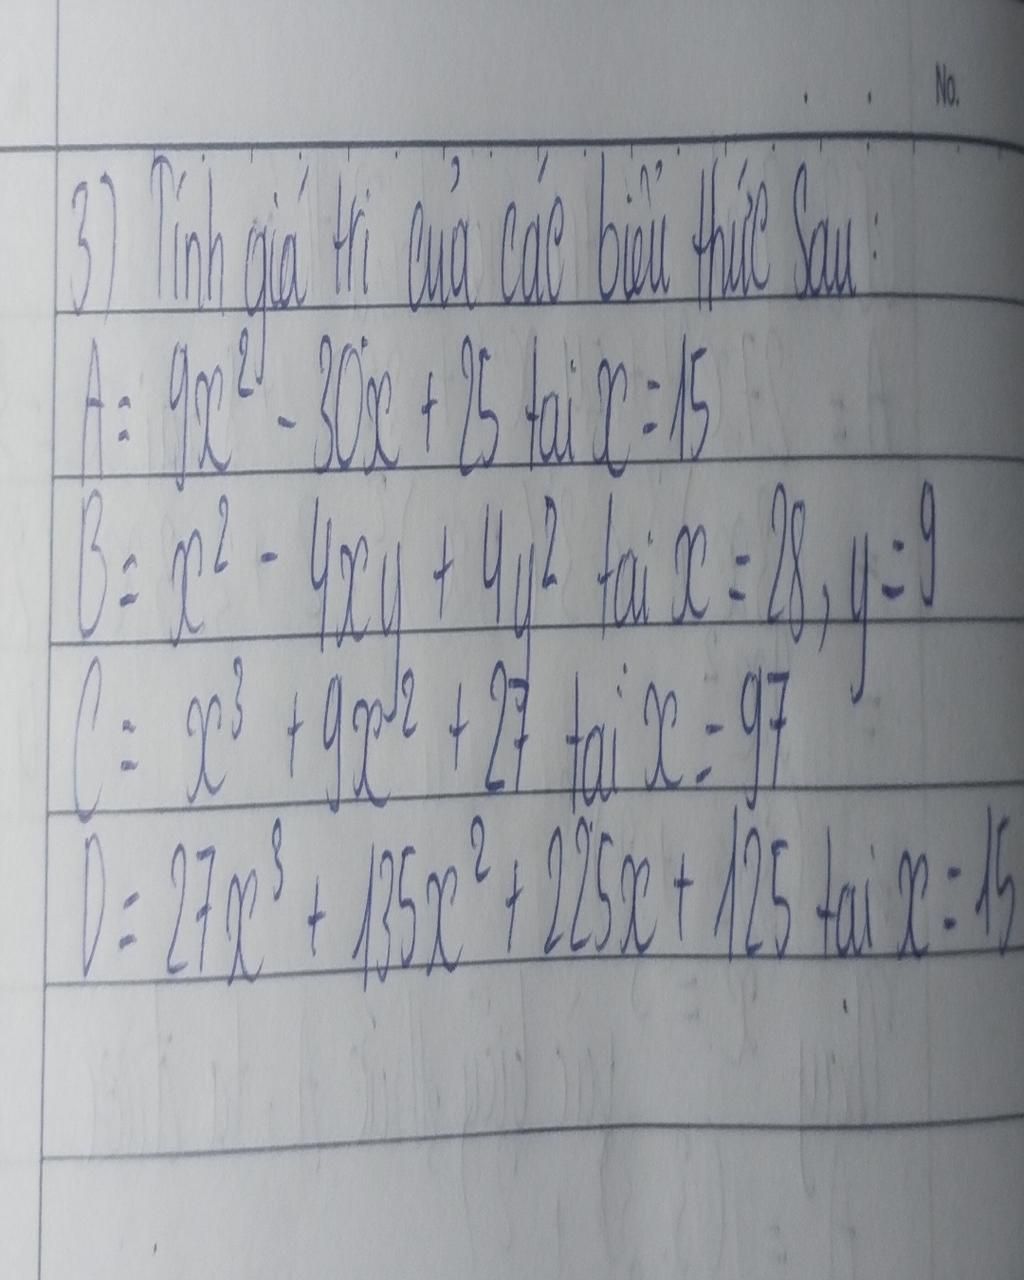 No.
3) Tính giá trị của các biểu thức sau:
A = 9x² - 30x + 25 tại x = 15
B = x² - 4xy + 4y² tại x = 28, y = 9
C = x³ + 9x² + 27 tại x = 97
D = 27x³ + 135x² + 225x + 125 tại x = 15